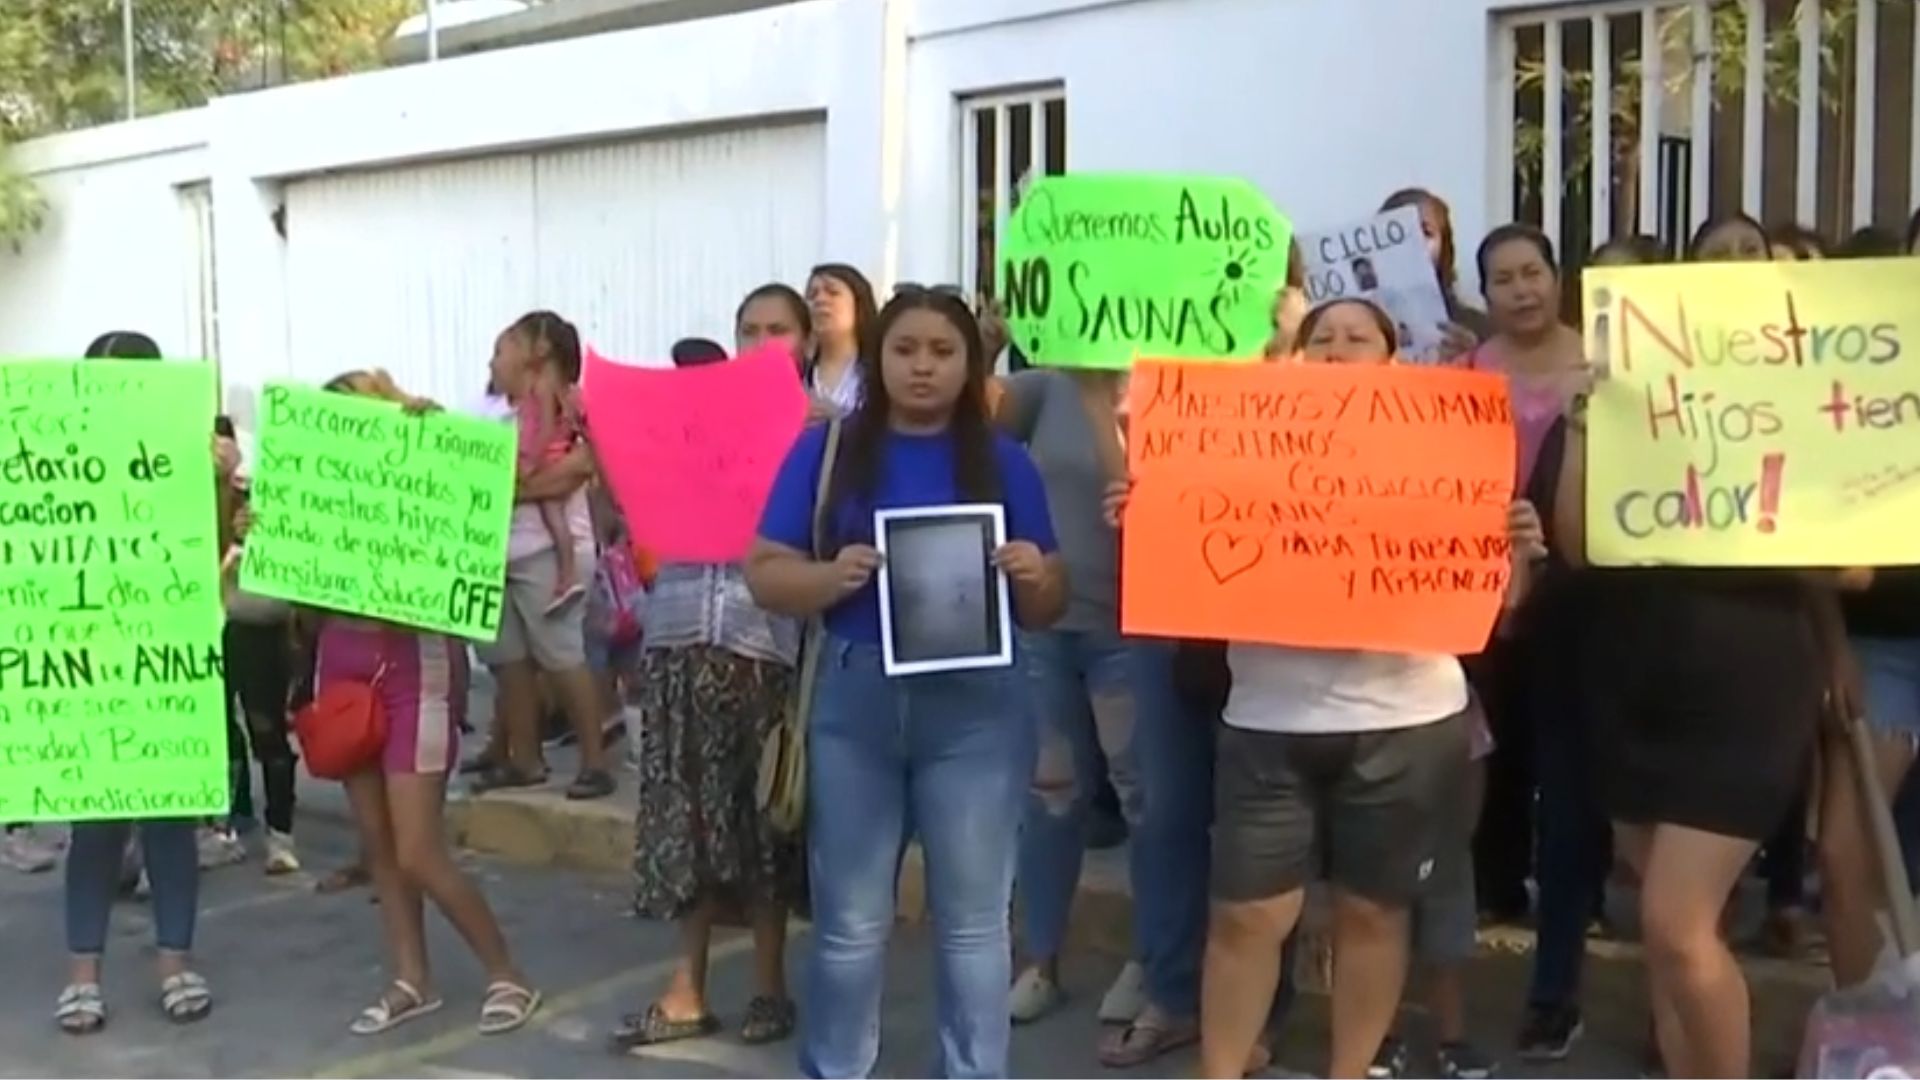 Por favor
eñor:
retario de
cacion lo
NVITAMOS
enir 1 dia de
PLAN de AYALA
que es una
cesidad Basica
el
Acondicionado
Buscamos y Exigimos
Ser escuchados ya
que nuestros hijos han
Sufrido de golpes de Calor
Necesitamos Solucion CFE
Queremos Aulas
NO SAUNAS
CICLO
ADO
MAESTROS Y ALUMNOS
NECESITAMOS
CONDICIONES
DIGNAS
PARA TRABAJAR
Y APRENDER
¡Nuestros
Hijos tien
calor!